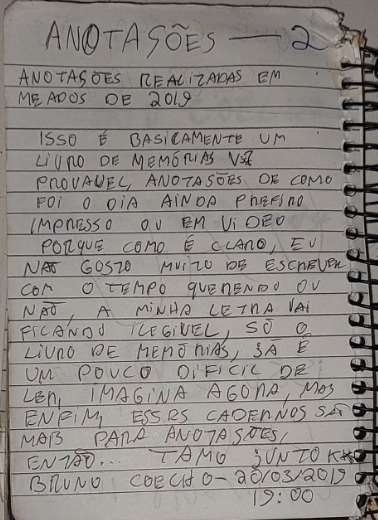 ANOTASÕES — 2
ANOTASÕES REALIZADAS EM
MEADOS DE 2019
ISSO É BASICAMENTE UM
LIVRO DE MEMÓRIAS
PROVAVEL, ANOTASÕES DE COMO
FOI O DIA AINDA PREFIRO
IMPRESSO OU EM VIDEO
PORQUE COMO É CLARO, EU
NÃO GOSTO MUITO DE ESCREVER
COM O TEMPO QUERENDO OU
NÃO, A MINHA LETRA VAI
FICANDO ILEGIVEL, SÓ O
LIVRO DE MEMÓRIAS, JÁ É
UM POUCO DIFICIL DE
LER, IMAGINA AGORA, MAS
ENFIM, ESSES CADERNOS SÃ
MAIS PARA ANOTASÕES,
ENTÃO... TAMO JUNTO
BRUNO COELHO - 20/03/2019
19:00